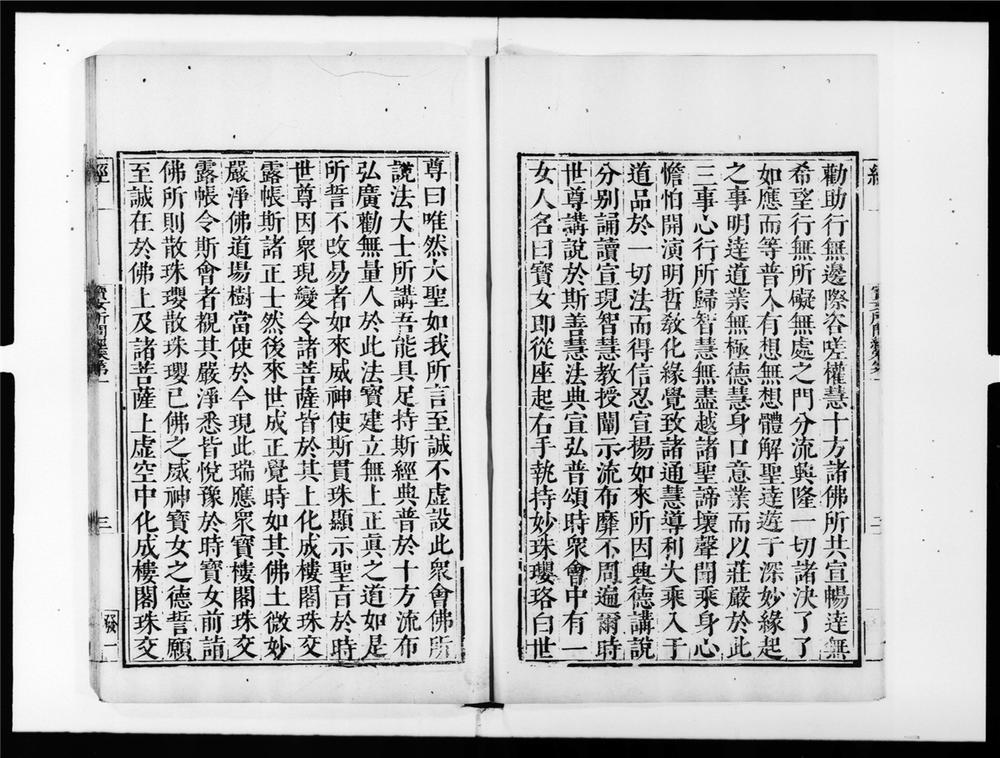 勸助行無邊際咨嗟權慧十方諸佛所共宣暢達無
希望行無所礙無處之門分流興隆一切諸決了了
如應而等普入有想無想體解聖達遊于深妙緣起
之事明達道業無極德慧身口意業而以莊嚴於此
三事心行所歸智慧無盡越諸聖諦壞聲聞乘身心
憺怕開演明哲教化緣覺致諸通慧導利大乘入于
道品於一切法而得信忍宣揚如來所因興德講說
分別誦讀宣現智慧教授闡示流布靡不周遍爾時
世尊講說於斯善慧法典宣弘普頌時眾會中有一
女人名曰寶女即從座起右手執持妙珠瓔珞白世
尊曰唯然大聖如我所言至誠不虛設此眾會佛所
說法大士所講吾能具足持斯經典普於十方流布
弘廣勸無量人於此法寶建立無上正真之道如是
所誓不改易者如來威神使斯貫珠顯示聖旨於時
世尊因眾現變令諸菩薩皆於其上化成樓閣珠交
露帳斯諸正士然後來世成正覺時如其佛土微妙
嚴淨佛道場樹當使於今現此瑞應眾寶樓閣珠交
露帳令斯會者覩其嚴淨悉皆悅豫於時寶女前詣
佛所則散珠瓔散珠瓔已佛之威神寶女之德誓願
至誠在於佛上及諸菩薩上虛空中化成樓閣珠交
經一
寶女所問經卷第一
三
發一